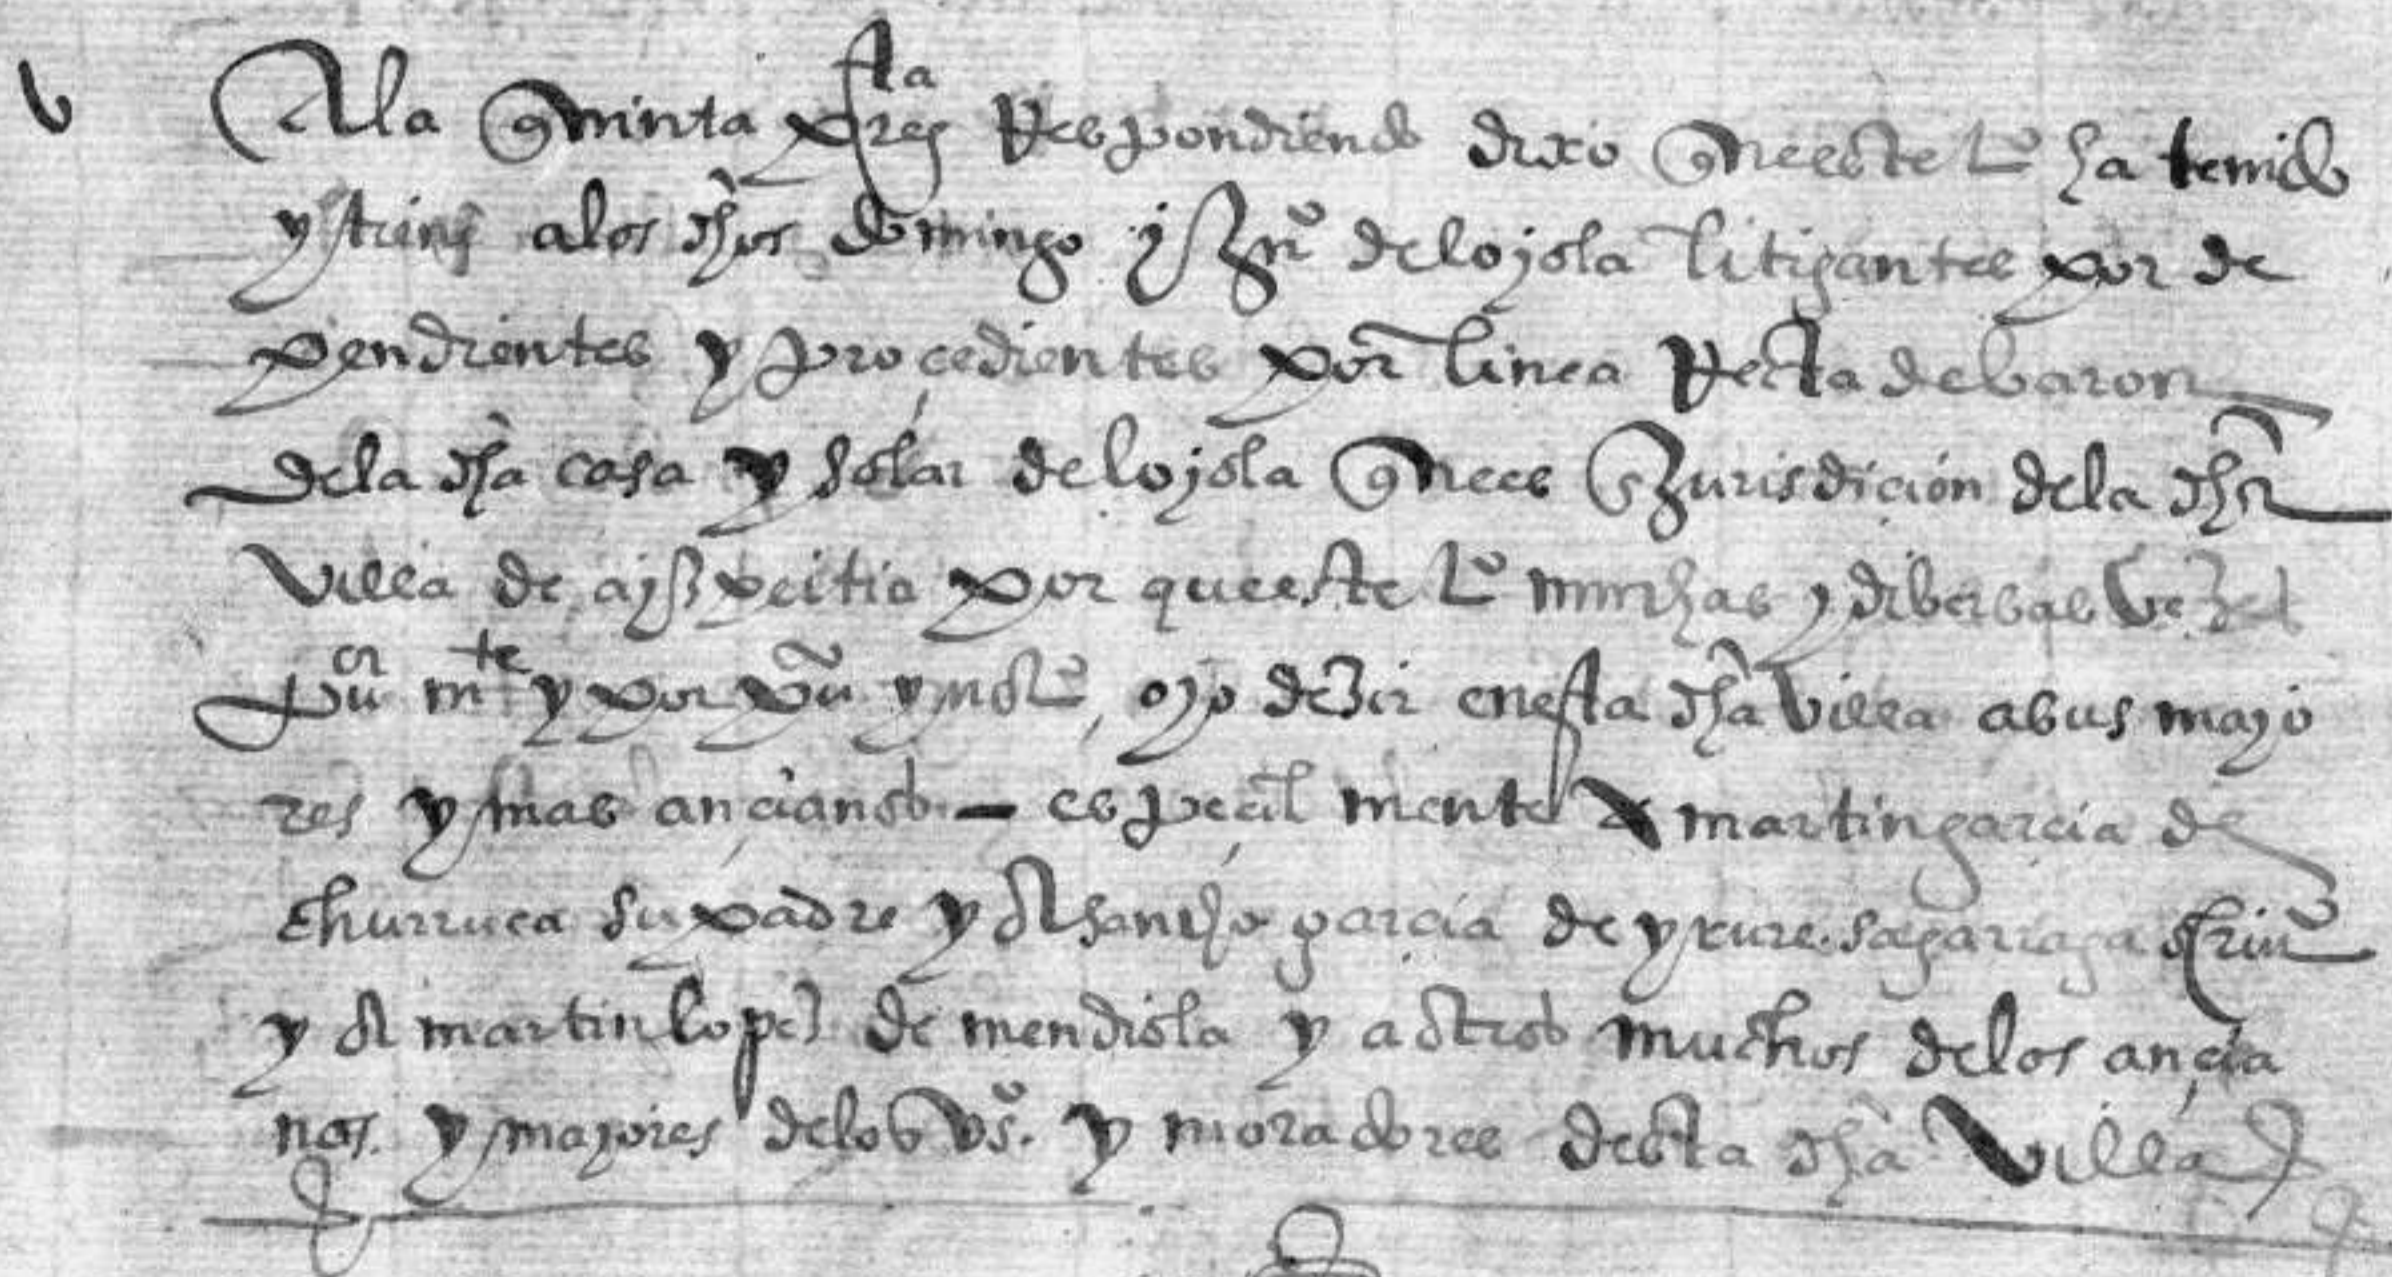 v A la quinta preg ta Respondiendo dixo que este tº ha tenido
y tiene a los dhos domingo y Juº de loyola litigantes por de
pendientes y procedientes por linea Recta de baron
de la dha casa y solar de loyola que es Jurisdiçion de la dha
villa de ayzpeitia por que este tº muchas y dibersas vezes
y por pu ynstº oyo dezir en esta dha villa a sus mayo
res y mas ançianos - espeçial mente a martin garçia de
churruca su padre y a sancho garcia de yrure sagarraga scriuº
y a martin lopez de mendiola y a otros muchos de los ançia
nos y mayores de los vsº. y moradores desta dha villa